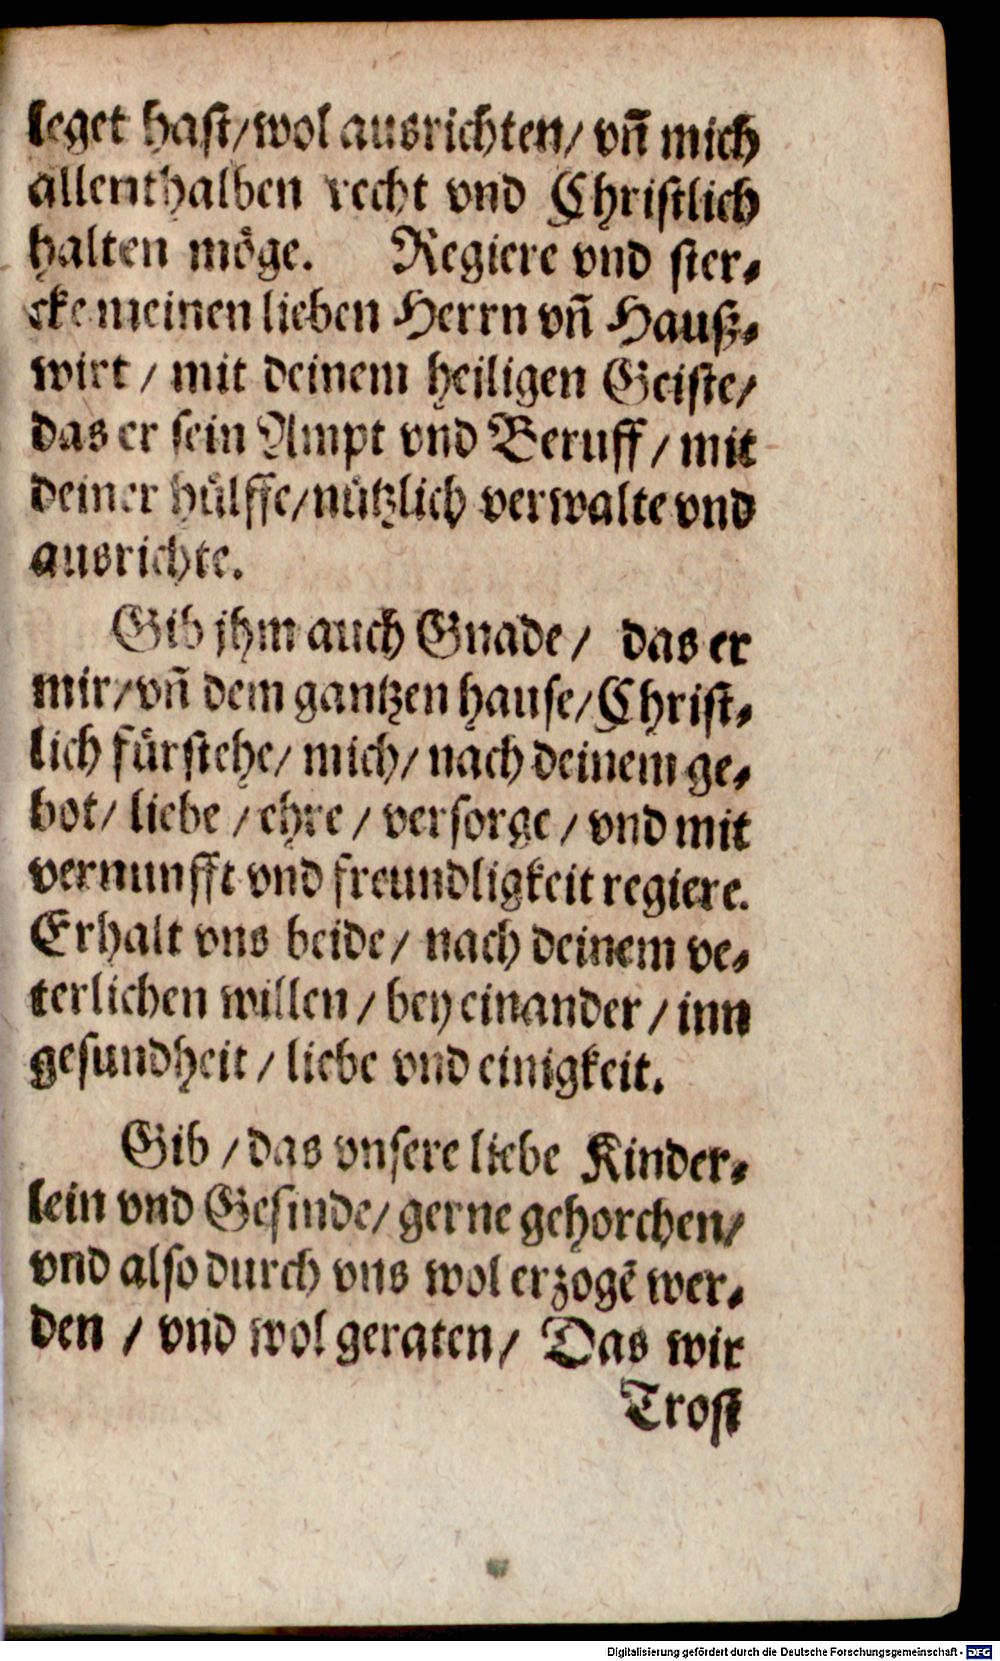 leget hast/wol ausrichten/ vn̄ mich
allenthalben recht vnd Christlich
halten möge. Regiere vnd ster-
cke meinen lieben Herrn vn̄ Hauß-
wirt / mit deinem heiligen Geiste/
das er sein Ampt vnd Beruff / mit
deiner hülffe/nützlich verwalte vnd
ausrichte.
Gib jhm auch Gnade / das er
mir/vn̄ dem gantzen hause/Christ-
lich fürstehe/ mich/ nach deinem ge-
bot/ liebe / ehre / versorge / vnd mit
vernunfft vnd freundligkeit regiere.
Erhalt vns beide/ nach deinem ve-
terlichen willen / bey einander / inn
gesundheit / liebe vnd einigkeit.
Gib / das vnsere liebe Kinder-
lein vnd Gesinde/ gerne gehorchen/
vnd also durch vns wol erzogē wer-
den / vnd wol geraten/ Das wir
Trost
Digitalisierung gefördert durch die Deutsche Forschungsgemeinschaft - DFG